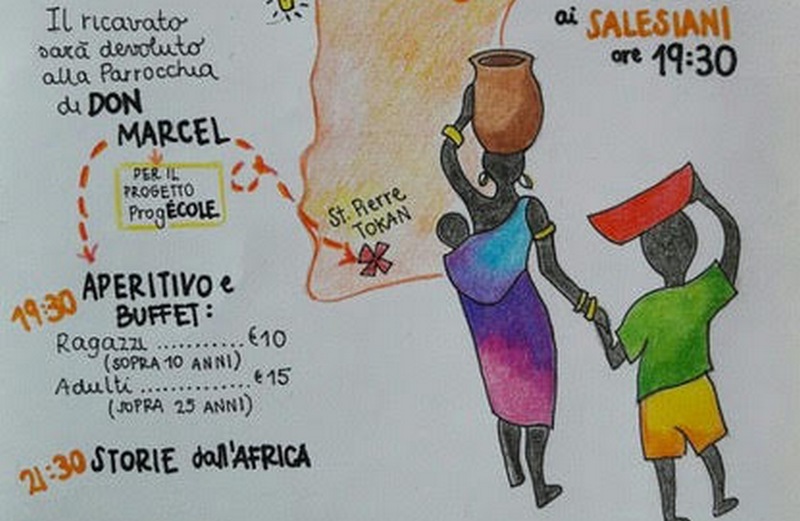 Il ricavato
sarà devoluto
alla Parrocchia
di DON
MARCEL
PER IL
PROGETTO
ProgÉCOLE
ai SALESIANI
ore 19:30
St. Pierre
TOKAN
19:30 APERITIVO e
BUFFET:
Ragazzi ........... €10
(SOPRA 10 ANNI)
Adulti .............. €15
(SOPRA 25 ANNI)
21:30 STORIE dall'AFRICA